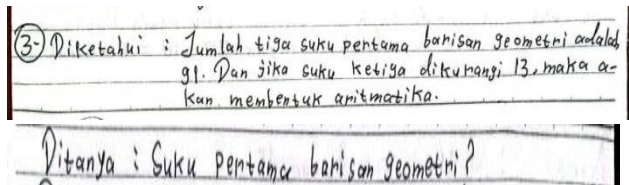 3-) Diketahui : Jumlah tiga suku pertama barisan geometri adalah
91. Dan jika suku ketiga dikurangi 13, maka a-
kan membentuk aritmatika.
Ditanya : Suku pertama barisan geometri?